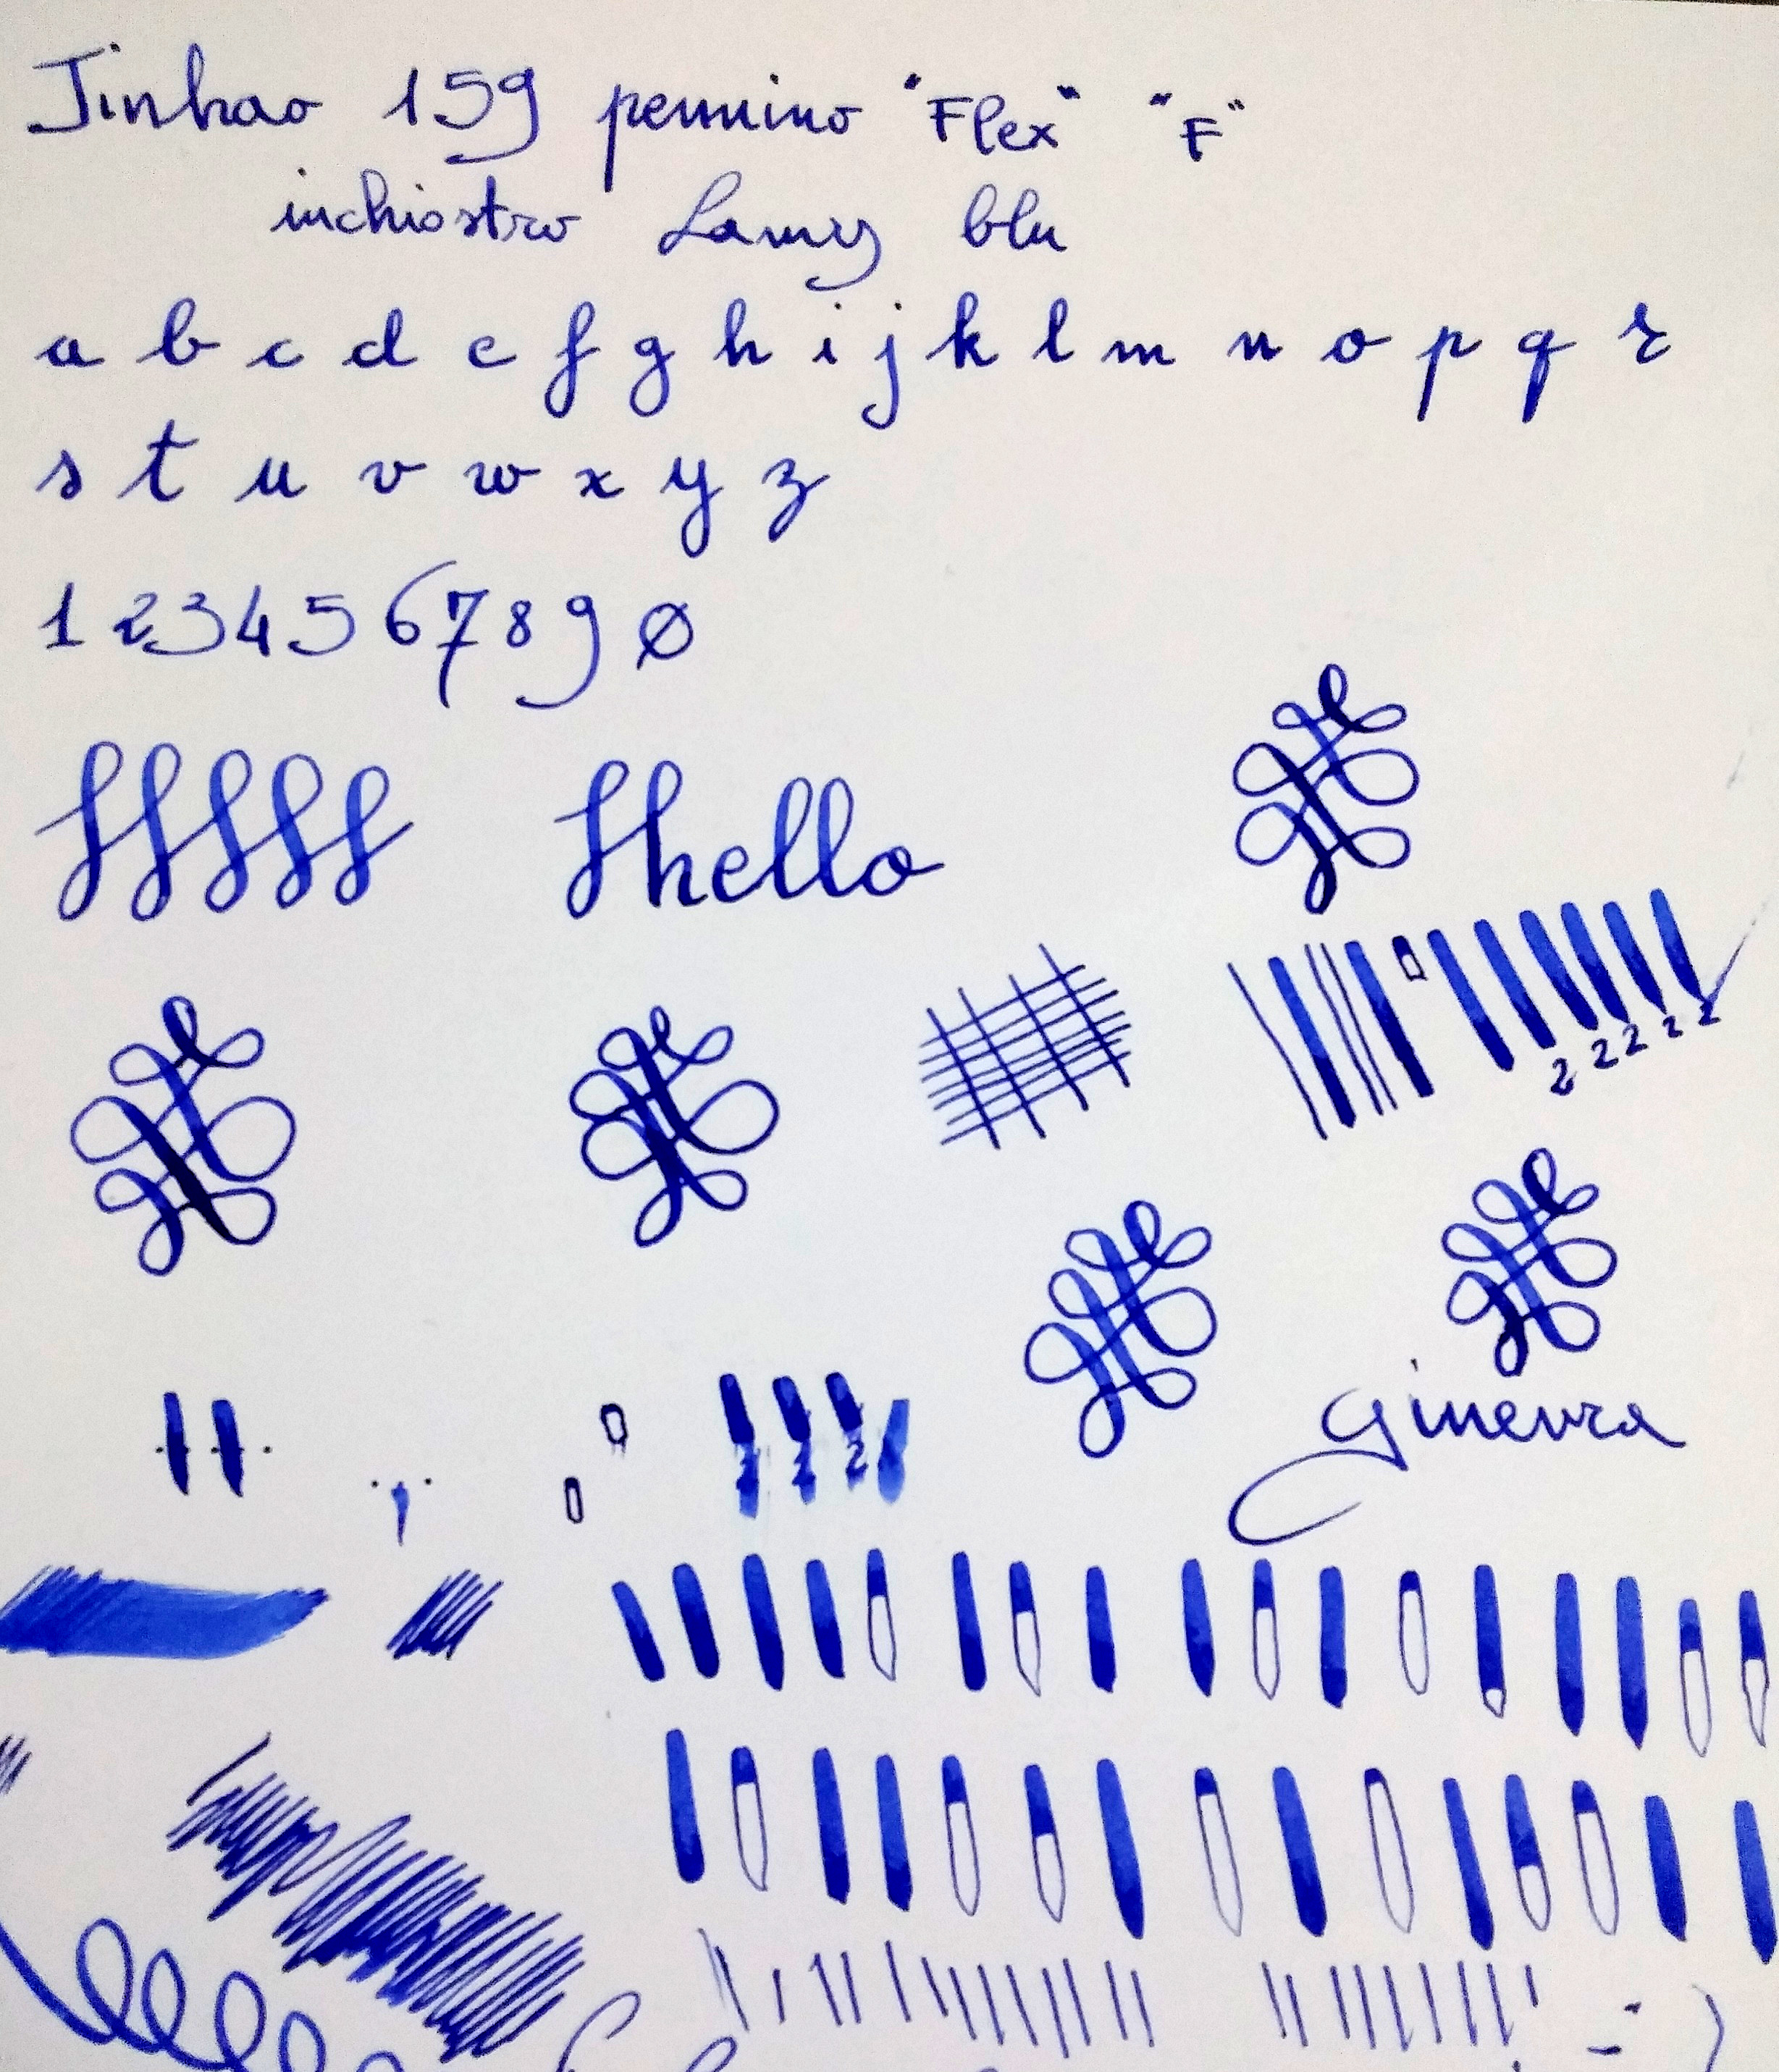 Jinhao 159 pennino "Flex" "F"
inchiostro Lamy blu
a b c d e f g h i j k l m n o p q r
s t u v w x y z
1 2 3 4 5 6 7 8 9 0
fffff fhello
2 2 2 2 2
Ginevra
2 2 2